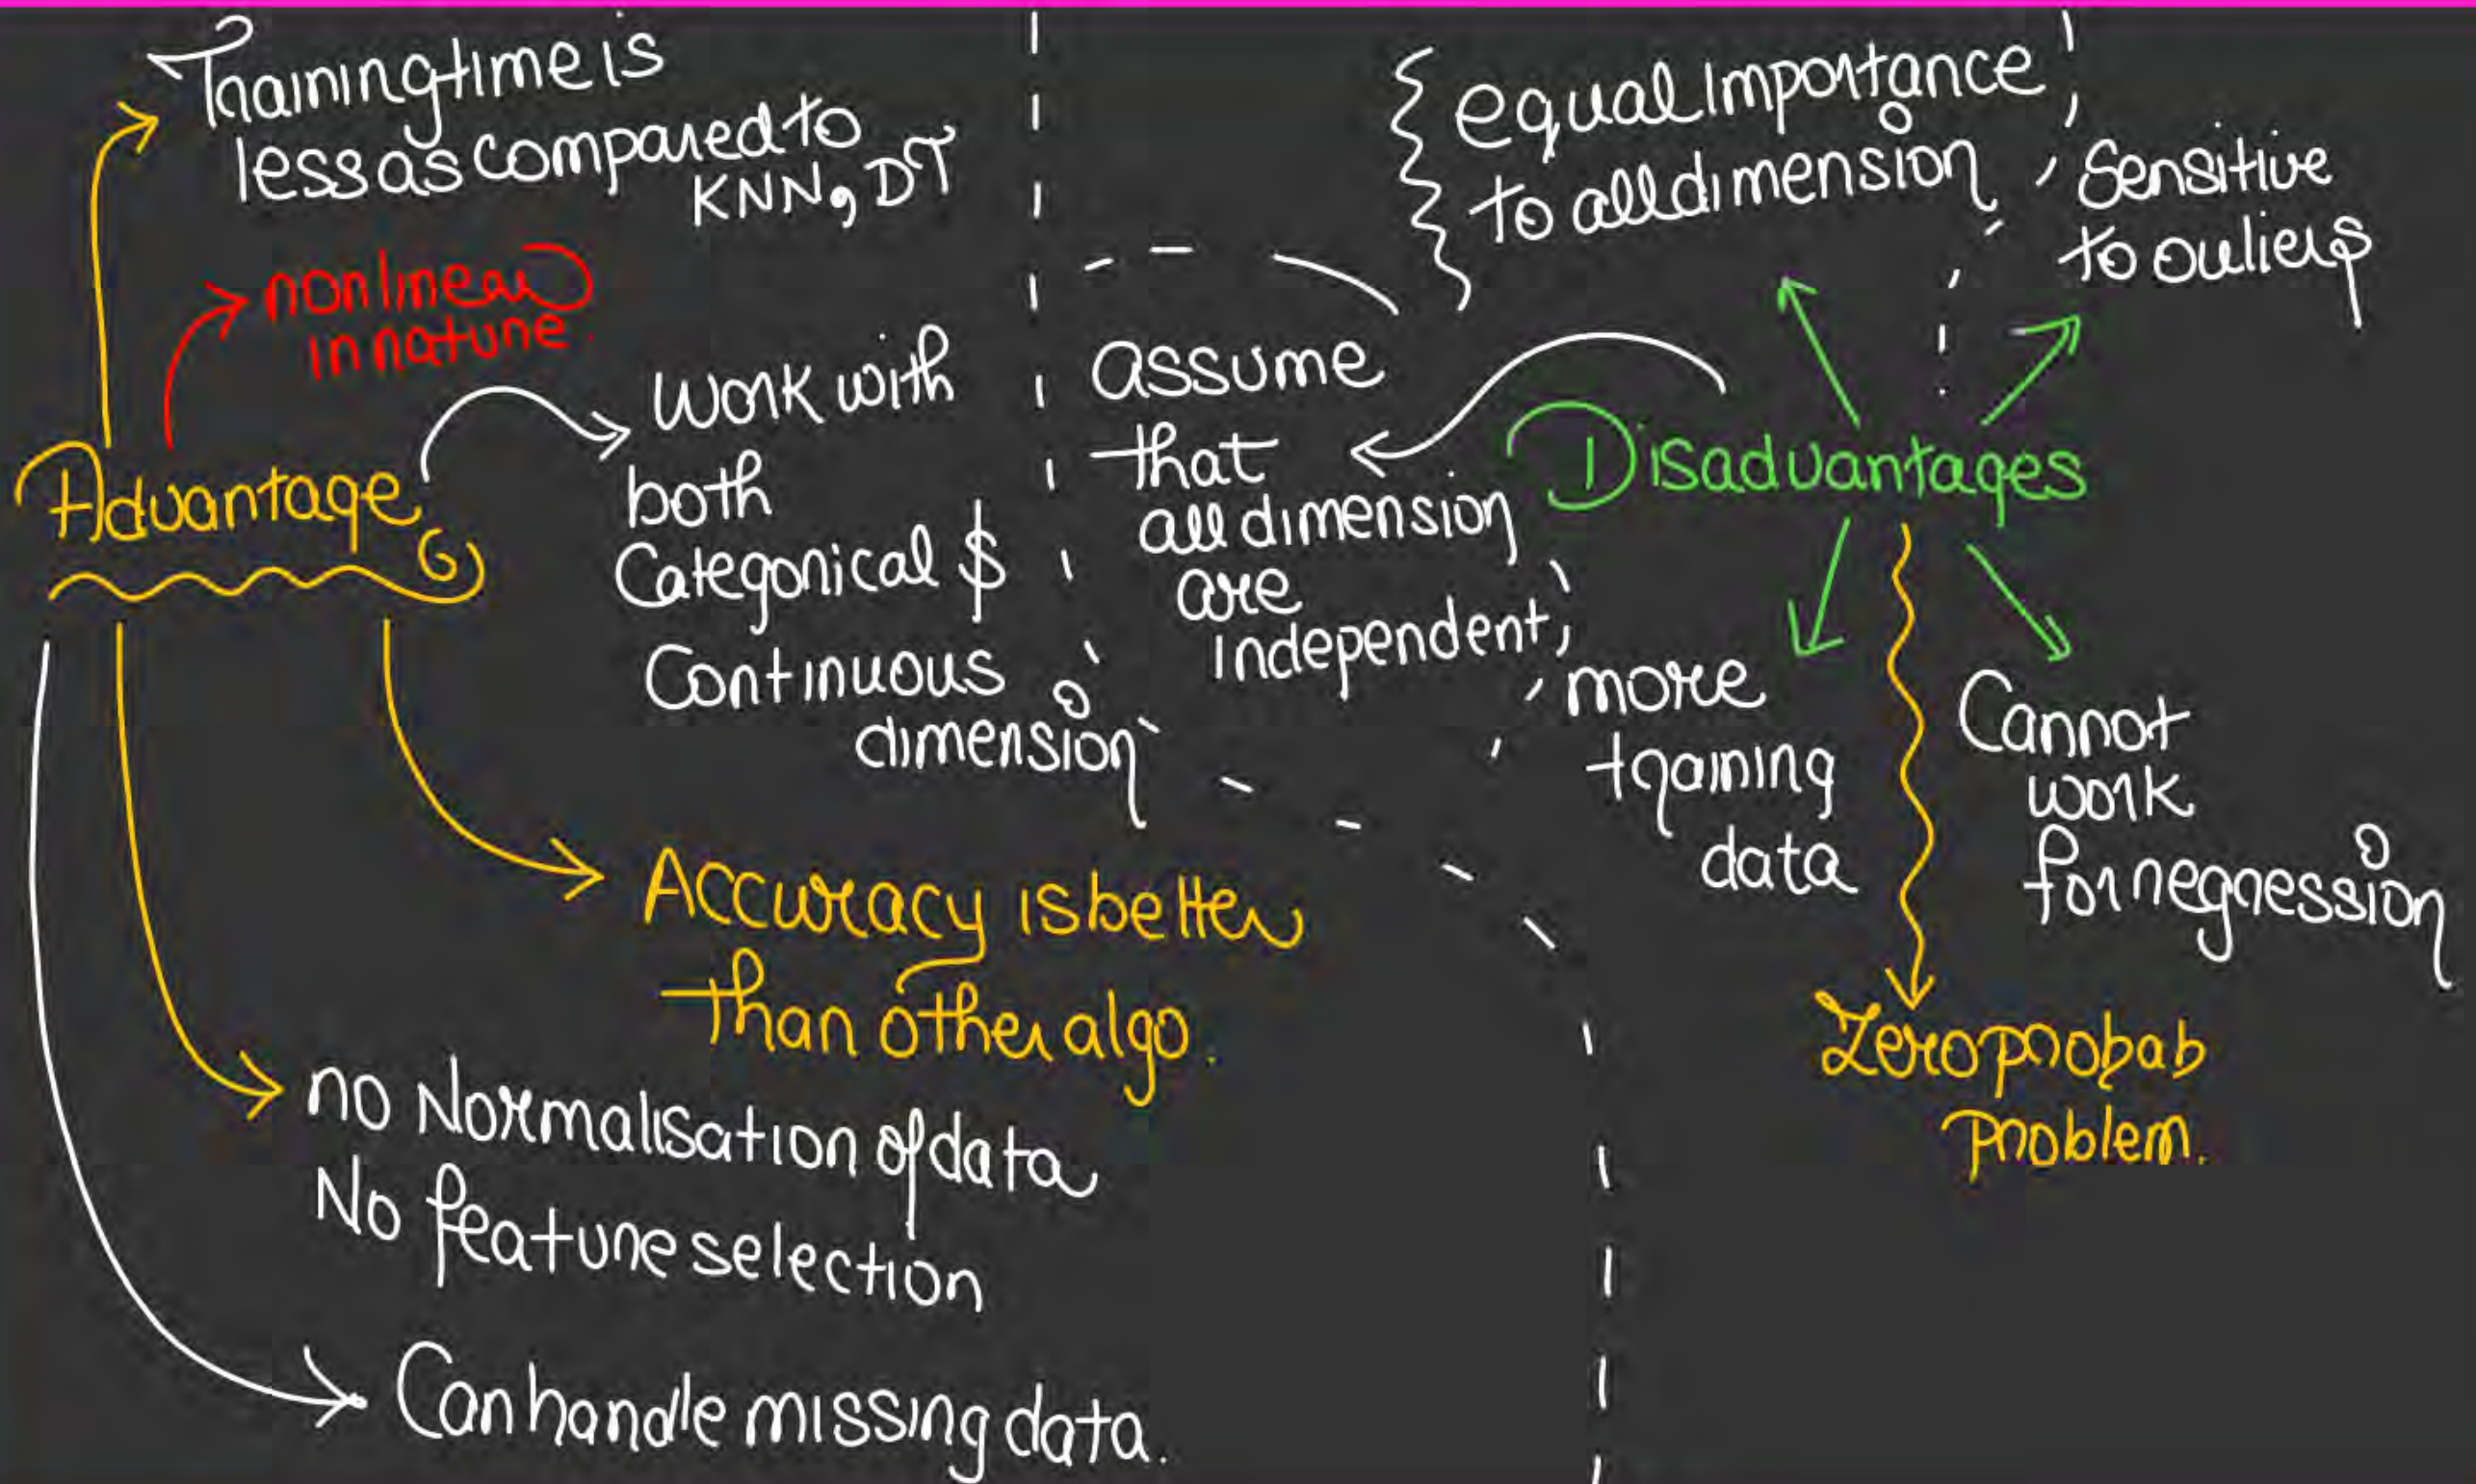 Training time is
less as compared to
KNN, DT
nonlinear
in nature.
Advantage
work with
both
Categorical $
Continuous
dimension
Accuracy is better
than other algo.
no Normalisation of data
No feature selection
Can handle missing data.
equal importance
to all dimension
Sensitive
to ouliers
assume
that
all dimension
are
independent,
Disadvantages
more
training
data
Cannot
work
for regression
Zero probab
problem.